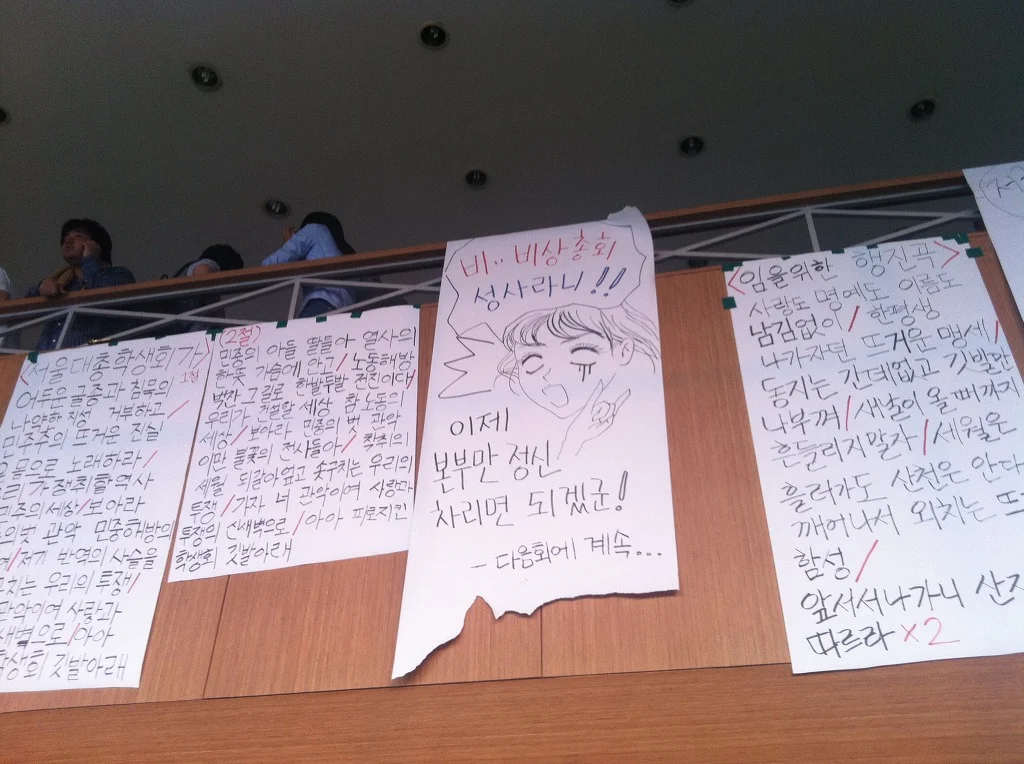 <서울대총학생회가>
1절
어두운 굴종과 침묵의
나약한 지성 거부하고/
민주주의 뜨거운 진실
온몸으로 노래하라/
우리 가 쟁취할 역사
민중의 세상/보아라
관악 민중해방의
저기 반역의 사슬을
우리의 투쟁/
관악이여 사랑과
새벽으로/아아
학생회 깃발아래
(2절)
민중의 아들 딸들아 열사의
한뜻 가슴에 안고/노동해방
벅찬 그길로 한발두발 전진이다/
우리가 건설할 세상 참노동의
세상/보아라 민중의 벗 관악
이만 불꽃의 전사들아/착취의
세월 되갈아엎고 솟구치는 우리의
투쟁/가자 너 관악이여 사랑과
투쟁의 산새벽으로/아아 피로지킨
학생회 깃발아래
비.. 비상총회
성사라니!!
이제
본부만 정신
차리면 되겠군!
- 다음회에 계속...
<임을위한 행진곡>
사랑도 명예도 이름도
남김없이/한평생
나가자던 뜨거운 맹세/
동지는 간데없고 깃발만
나부껴/새날이 올 때까지
흔들리지말자/세월은
흘러가도 산천은 안다
깨어나서 외치는 뜨
함성/
앞서서나가니 산자
따르라 x2
<서